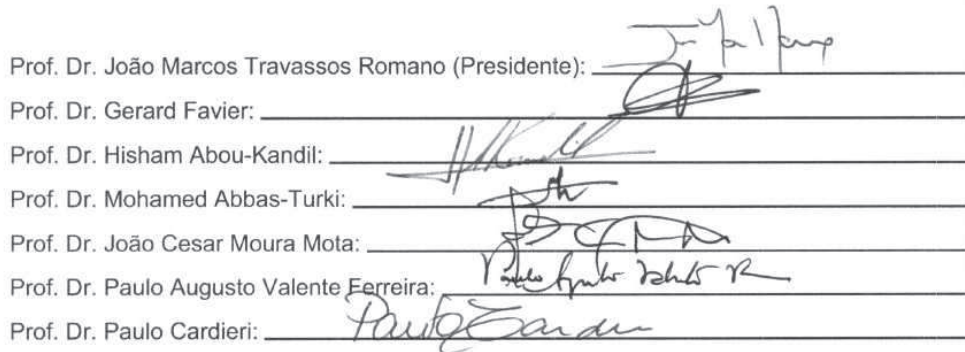 Prof. Dr. João Marcos Travassos Romano (Presidente):
Prof. Dr. Gerard Favier:
Prof. Dr. Hisham Abou-Kandil:
Prof. Dr. Mohamed Abbas-Turki:
Prof. Dr. João Cesar Moura Mota:
Prof. Dr. Paulo Augusto Valente Ferreira:
Prof. Dr. Paulo Cardieri: